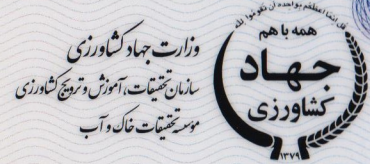 وزارت جهاد کشاورزی
سازمان تحقیقات، آموزش و ترویج کشاورزی
موسسه تحقیقات خاک و آب
قل انما اعظکم بواحدة ان تقوموا لله
همه با هم
جهاد
کشاورزی
۱۳۷۹